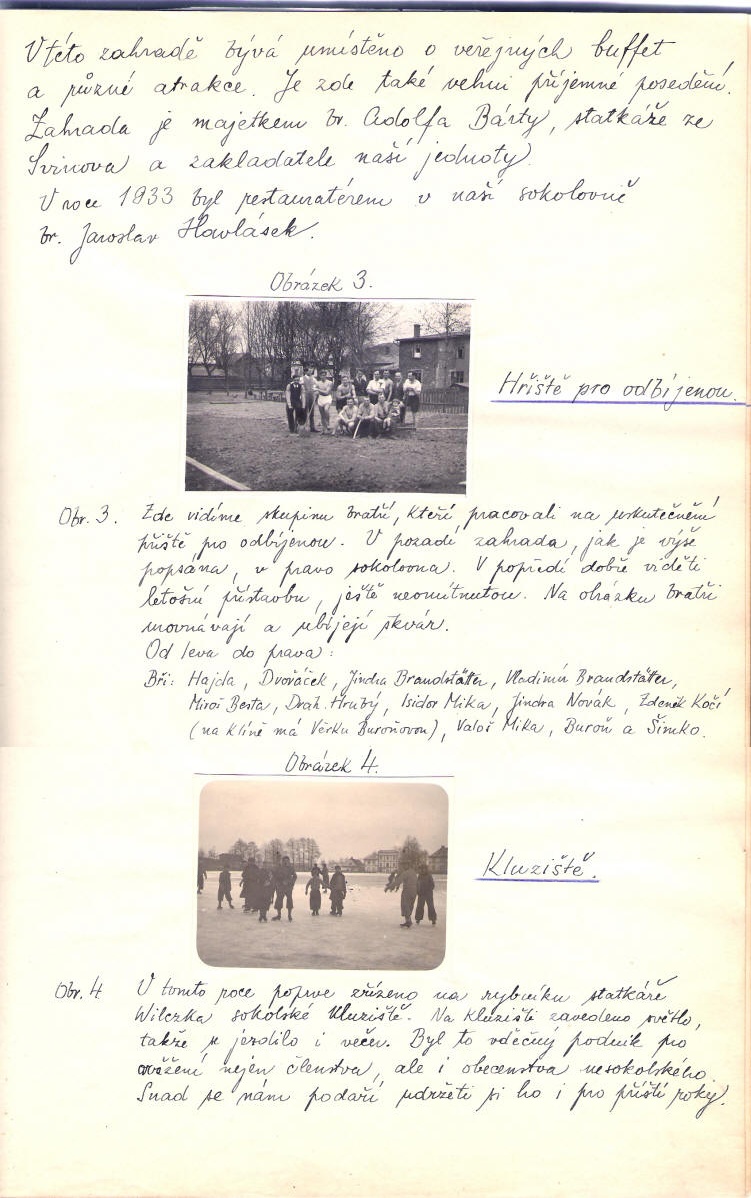 V této zahradě bývá umístěno o veřejných buffet
a různé atrakce. Je zde také velmi příjemné posedění.
Zahrada je majetkem br. Adolfa Bárty, statkáře ze
Svinova a zakladatele naší jednoty.
V roce 1933 byl restauratérem v naší sokolovně
br. Jaroslav Havlásek.
Obrázek 3.
Hřiště pro odbíjenou.
Obr. 3. Zde vidíme skupinu bratří, kteří pracovali na uskutečnění
hřiště pro odbíjenou. V pozadí zahrada, jak je výše
popsána, v pravo sokolovna. V popředí dobře viděti
letošní přístavbu, ještě neomítnutou. Na obrázku bratři
urovnávají a ubíjejí škvár.
Od leva do prava:
Bři: Hajda, Dvořáček, Jindra Brandstätter, Vladimír Brandstätter,
Miroš Besta, Drah. Hrubý, Isidor Mika, Jindra Novák, Zdeněk Kočí
(na klíně má Věrku Buroňovou), Valoš Mika, Buroň a Šimko.
Obrázek 4.
Kluziště.
Obr. 4 V tomto roce poprve zřízeno na rybníku statkáře
Wilczka sokolské kluziště. Na kluzišti zavedeno světlo,
takže se jezdilo i večer. Byl to vděčný podnik pro
osvěžení nejen členstva, ale i obecenstva nesokolského.
Snad se nám podaří udržeti si ho i pro příští roky.